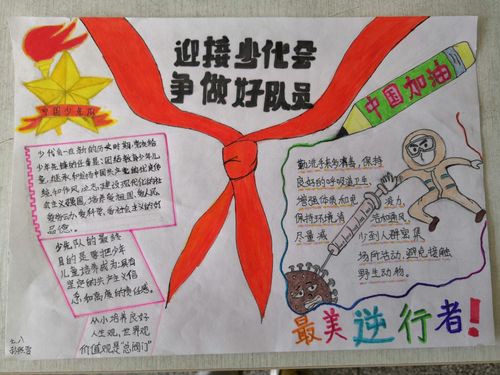 迎接少代会
争做好队员
中国少年队
中国加油
少代会在新的历史时期,党交给
少年先锋的任务是:团结教育少年儿
童,继承和发扬中国共产党的优良传
统和作风,立志建设现代化的社
会主义强国,培养爱祖国、爱人民、
爱劳动、爱科学、爱社会主义的好
品德。
少先队的最终
目的是要把少年
儿童培养成为:具有
坚定的共产主义信
念和高度的责任感。
从小培养良好
人生观,世界观
价值观是“总阀门”
七八
勤洗手来勿消毒,保持
良好的呼吸道卫生,
增强体质和免疫力,
保持环境清洁和通风,
尽量减少到人群密集
场所活动,避免接触
野生动物。
最美逆行者!